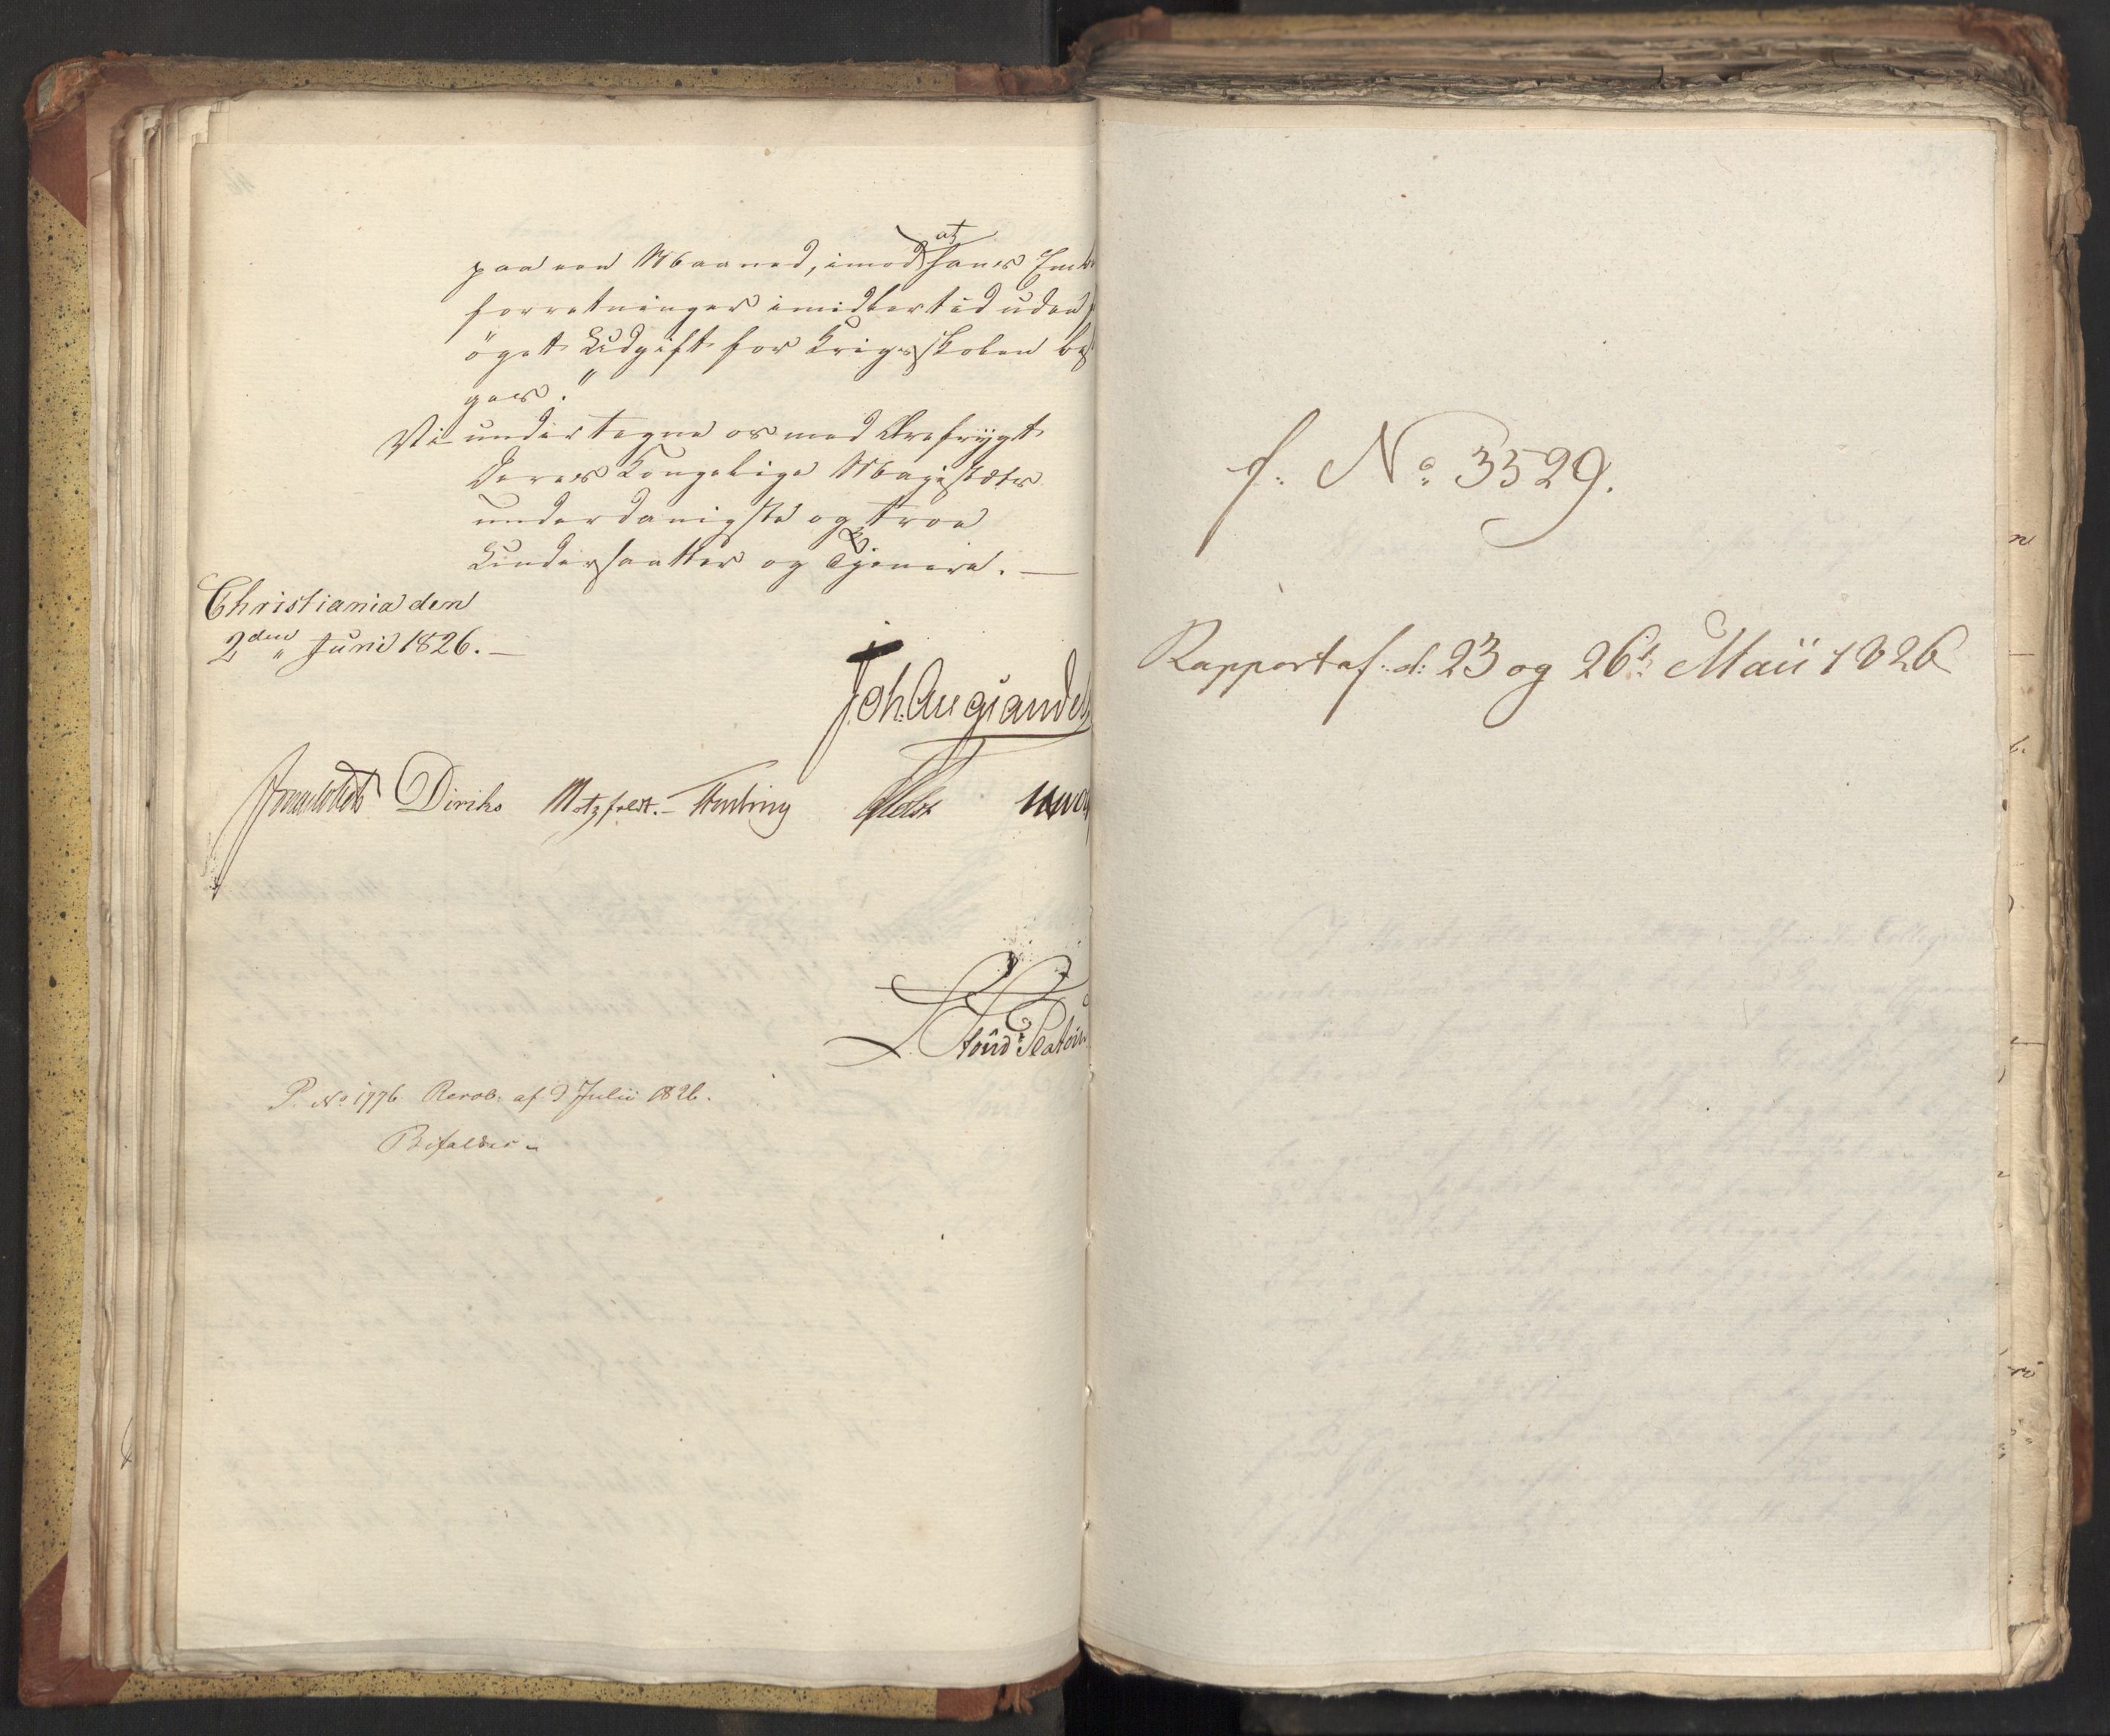 paa een Maaned, imod at hans Em
forretninger imidlertid uden f
öget Udgift for Krigsskolen bes
ges."
Vi undertegne os med Ærefrygt
Deres Kongelige Majestæts
underdanigste og troe
Undersaatter og Tjenere. —
Christiania den
2den Juni 1826. —
Joh. Aug Sandels
Diriks Motzfeldt. — Holst
P. No 1776. Resol: af 9 Julii 1826.
Bifaldes —
f: No 3529.
Rapport af: d: 23 og 26d: Maii 1826